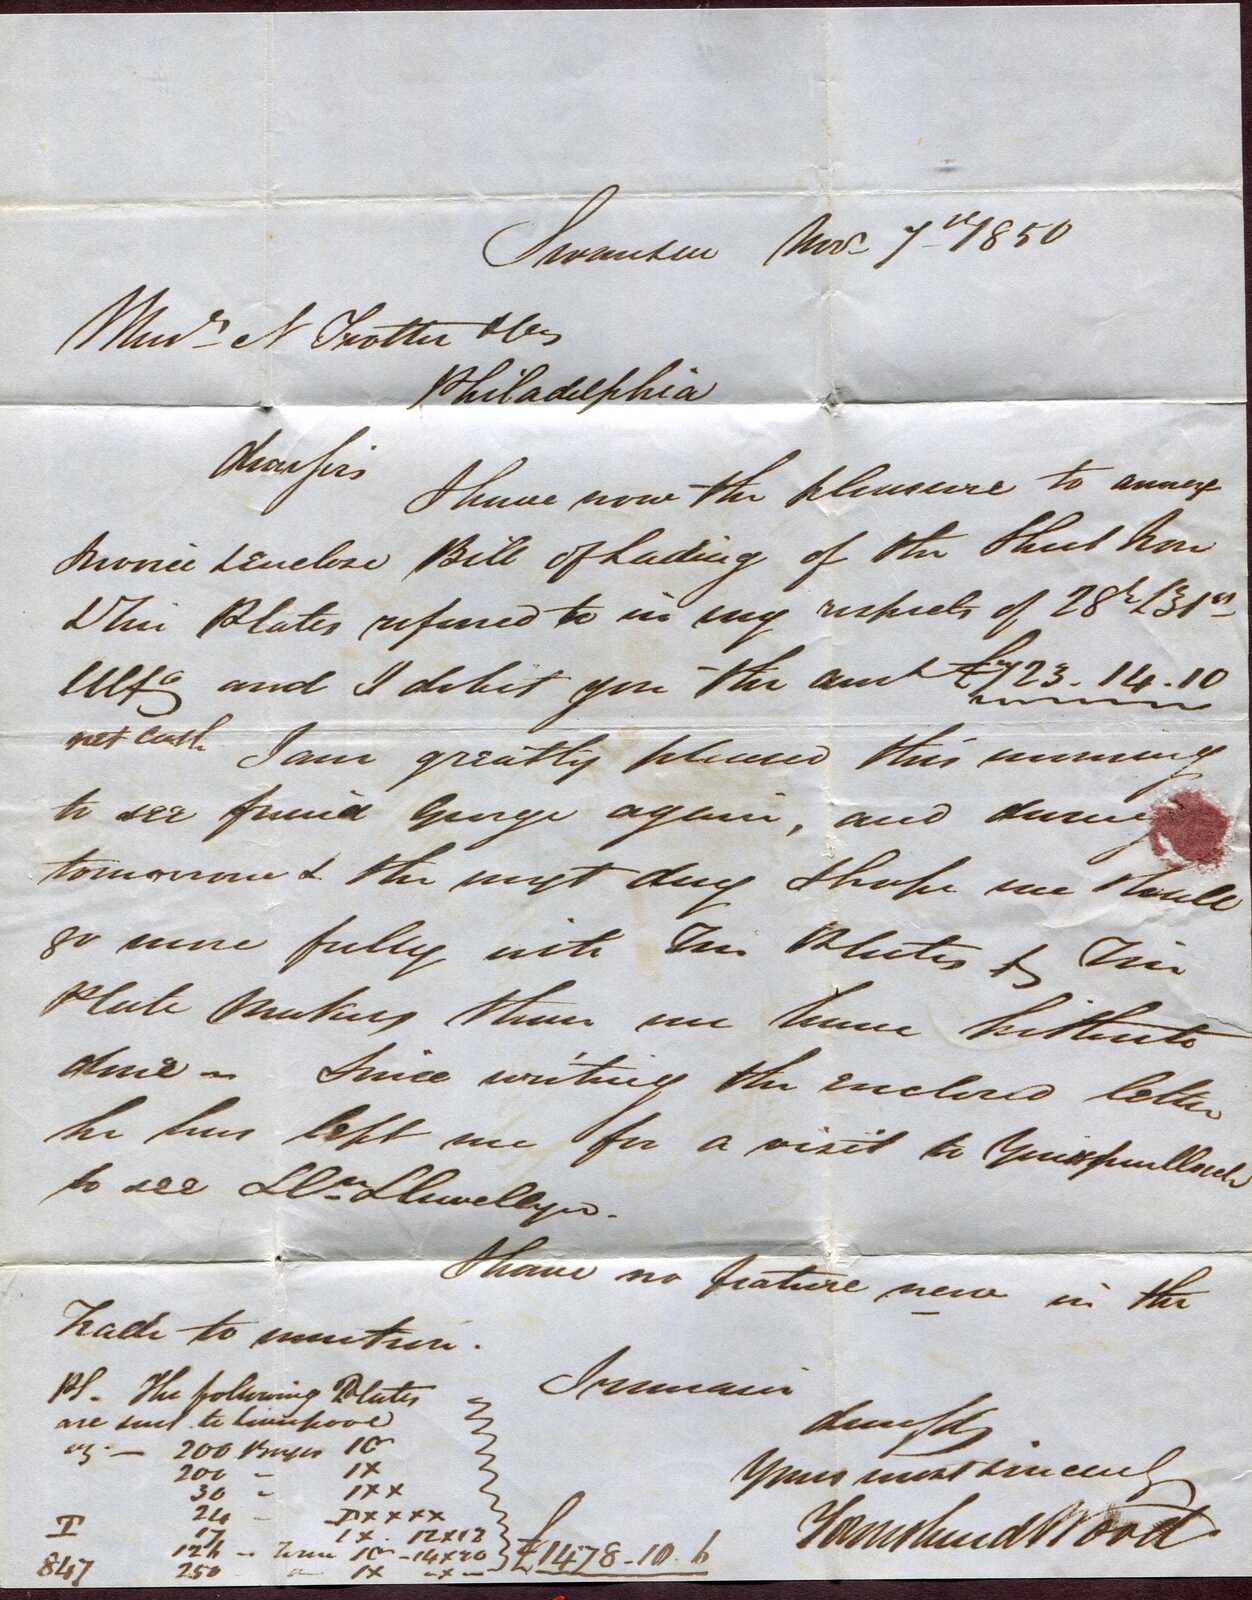 Swansea Nov. 7th 1850
Messrs N Trotter & Co
Philadelphia
Dear Sirs
I have now the pleasure to annex
Invoice & Enclose Bill of Lading of the Sheet Iron
& Tin Plates referred to in my respects of 28th & 31st
Ulto and I debit you the amt £723.14.10
net cash I am greatly pleased this morning
to see friend George again, and during
tomorrow & the next day I hope we shall
go more fully into Tin Plates & Tin
Plate Makers than we have hitherto
done - Since writing the enclosed letter
he has left me for a visit to
to see Llewellyn.
I have no feature new in the
Trade to mention.
I remain
Dear Sirs
Yours most sincerely
Wood
PS. The following Plates
are sent to Liverpool
vz - 200 Boxes IC
200 - IX
30 - IXX
24 - DXXXX
T 17 IX 12x12
124 - IC - 14x20
847 250 IX -x-
£1478-10.6